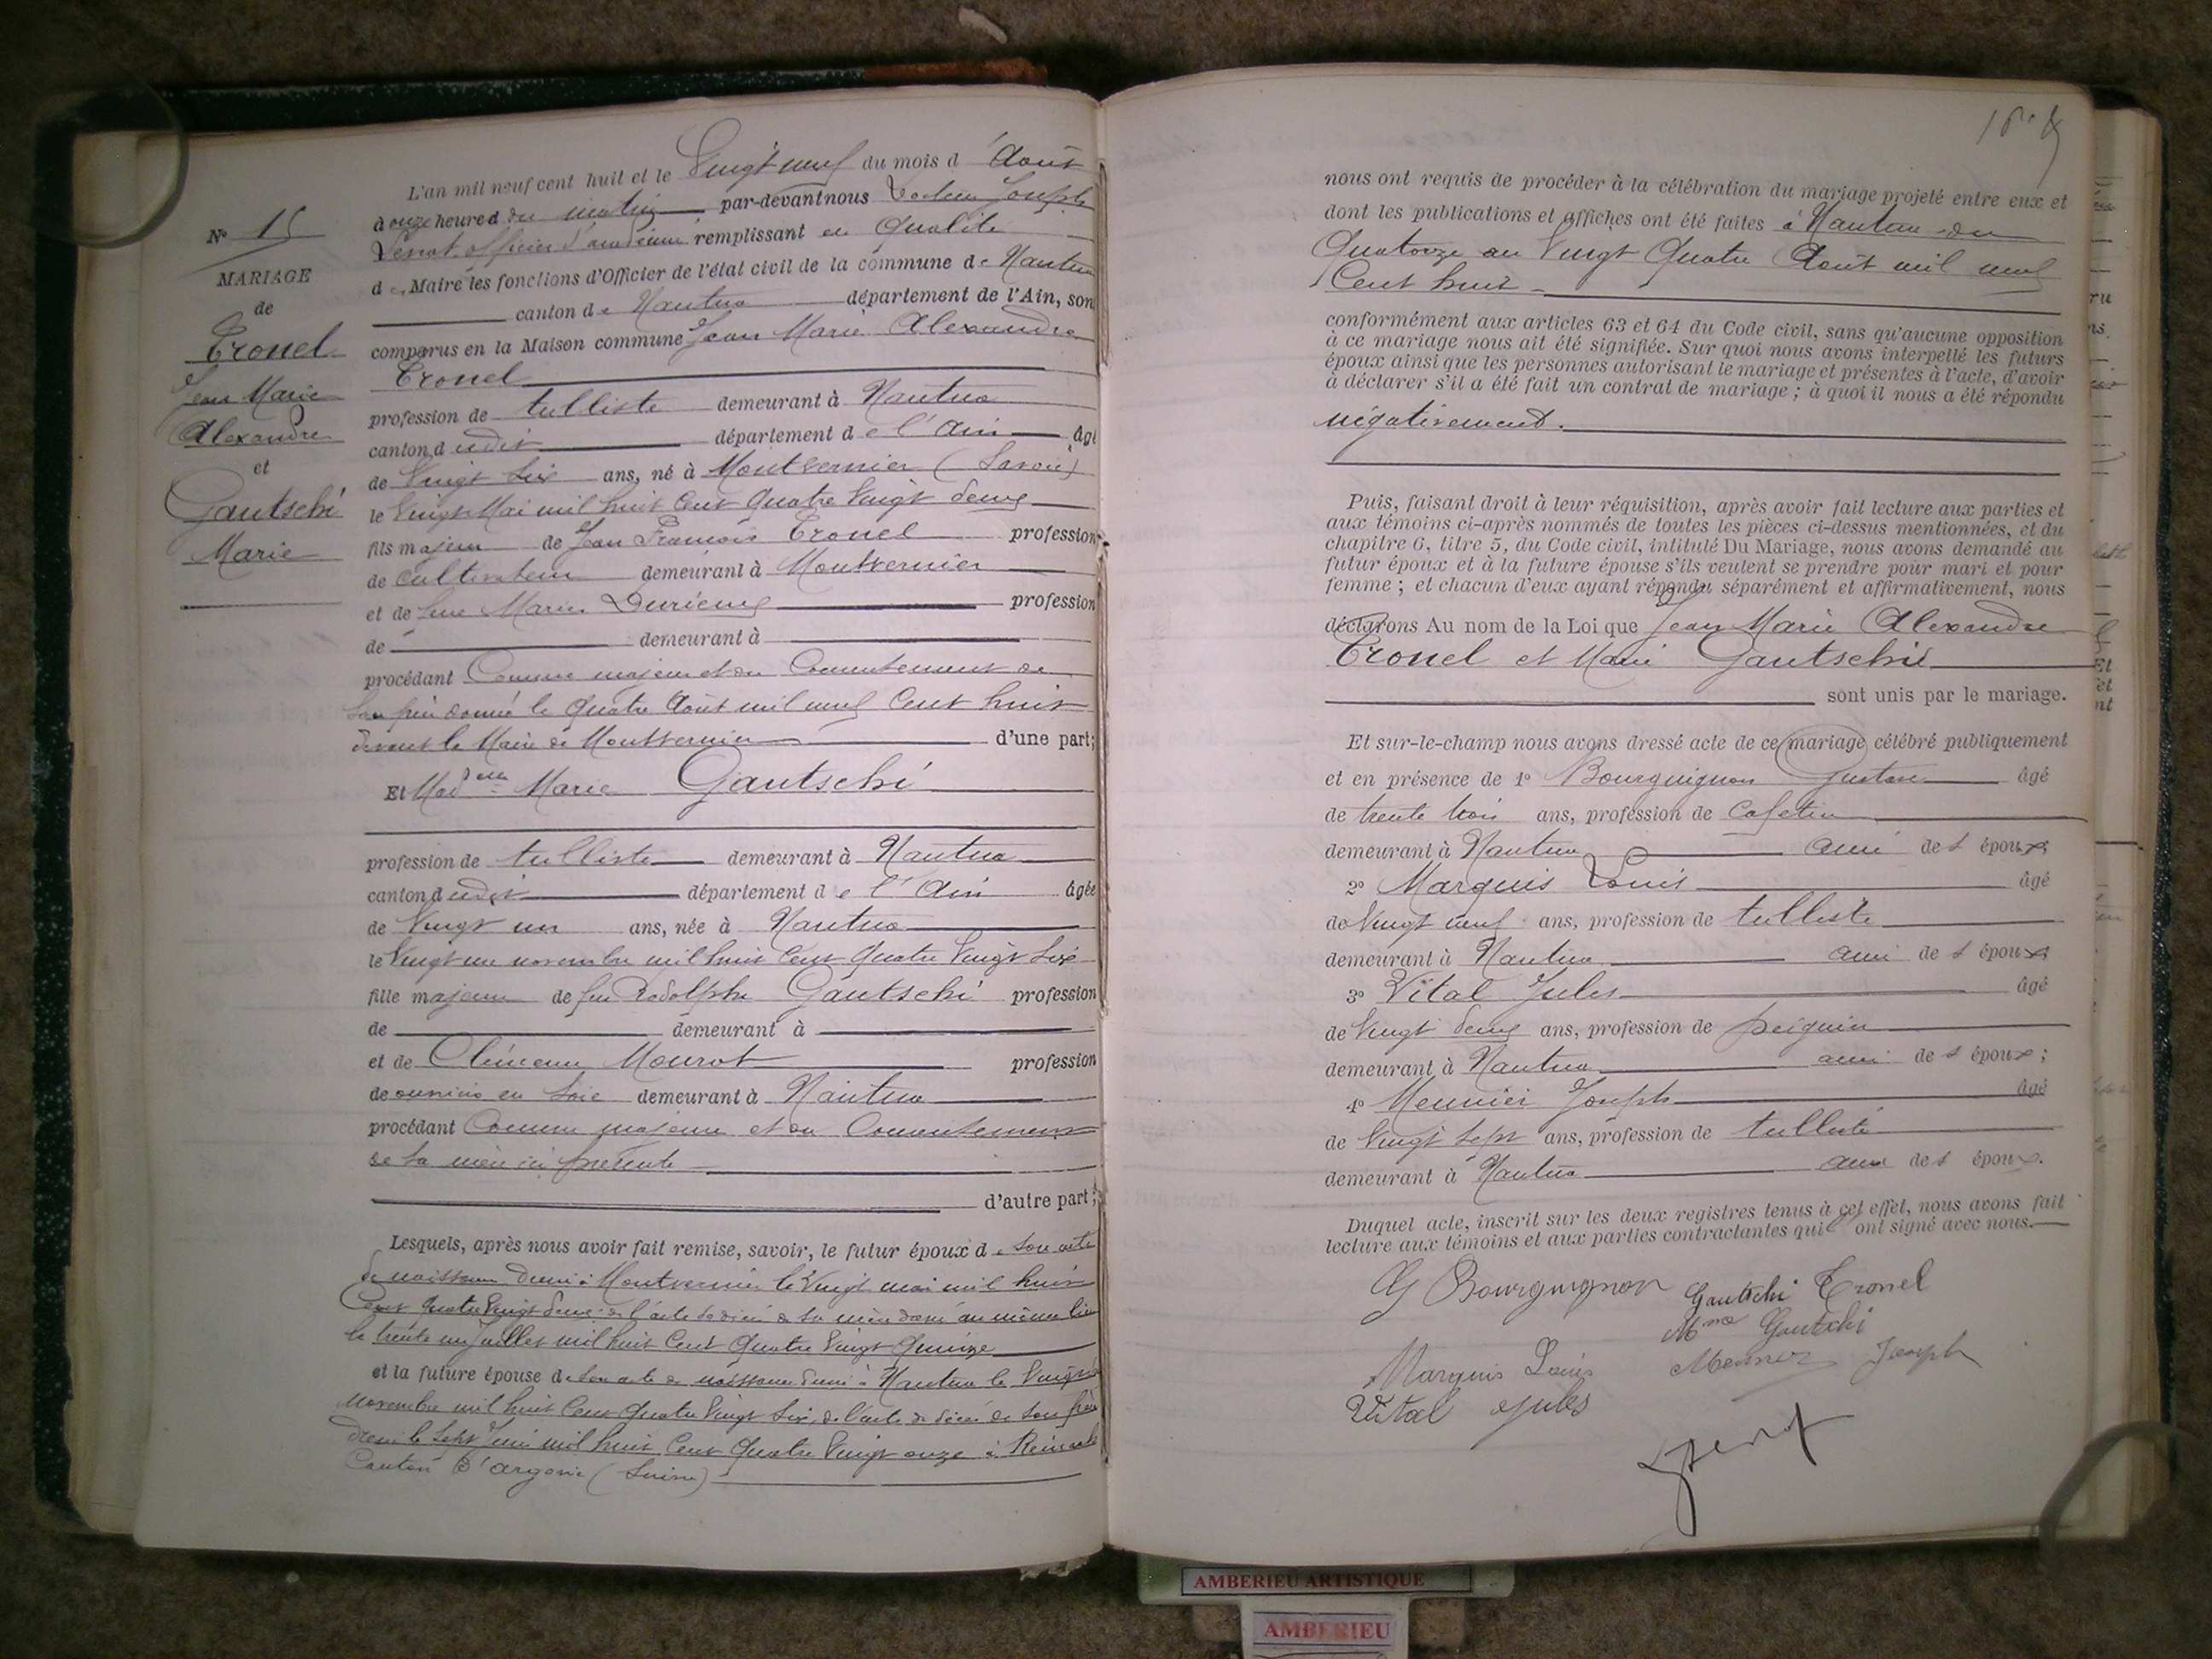 L'an mil neuf cent huit et le Vingt neuf du mois d'Août
à onze heures du matin par-devant nous Docteur Joseph
officier d'académie remplissant en qualité
de Maire les fonctions d'Officier de l'état civil de la commune de Nantua
canton de Nantua département de l'Ain, son
comparus en la Maison commune Jean Marie Alexandre
Tronel
profession de tulliste demeurant à Nantua
canton dudit département de l'Ain âgé
de Vingt six ans, né à Montvernier (Savoie)
le Vingt Mai mil huit Cent Quatre Vingt deux
fils majeur de Jean François Tronel profession
de cultivateur demeurant à Montvernier
et de feue Marie Durieux profession
de demeurant à
procédant Comme majeur et du Consentement de
son père donné le Quatre Août mil neuf Cent huit
devant le Maire de Montvernier d'une part;
Et Mad elle Marie Gautschi
profession de tulliste demeurant à Nantua
canton dudit département de l'Ain âgée
de Vingt un ans, née à Nantua
le Vingt un novembre mil huit Cent Quatre Vingt Six
fille majeure de feu Rodolphe Gautschi profession
de demeurant à
et de Clémence Mourot profession
de ouvrière en Soie demeurant à Nantua
procédant Comme majeure et du Consentement
de sa mère ici présente
d'autre part;
Lesquels, après nous avoir fait remise, savoir, le futur époux de son acte
de naissance dressé à Montvernier le Vingt mai mil huit
Cent Quatre Vingt deux de l'acte de décès de sa mère dressé au même lieu
le trente un Juillet mil huit Cent Quatre Vingt Quinze
et la future épouse de son acte de naissance dressé à Nantua le Vingt un
Novembre mil huit Cent Quatre Vingt Six, de l'acte de décès de son père
dressé le Sept Juin mil huit Cent Quatre Vingt onze à
Canton d'Argovie (Suisse)
N° 15
MARIAGE
de
Tronel
Jean Marie
Alexandre
et
Gautschi
Marie
nous ont requis de procéder à la célébration du mariage projeté entre eux et
dont les publications et affiches ont été faites à Nantua du
Quatorze au Vingt Quatre Août mil neuf
Cent huit
conformément aux articles 63 et 64 du Code civil, sans qu'aucune opposition
à ce mariage nous ait été signifiée. Sur quoi nous avons interpellé les futurs
époux ainsi que les personnes autorisant le mariage et présentes à l'acte, d'avoir
à déclarer s'il a été fait un contrat de mariage ; à quoi il nous a été répondu
négativement.
Puis, faisant droit à leur réquisition, après avoir fait lecture aux parties et
aux témoins ci-après nommés de toutes les pièces ci-dessus mentionnées, et du
chapitre 6, titre 5, du Code civil, intitulé Du Mariage, nous avons demandé au
futur époux et à la future épouse s'ils veulent se prendre pour mari et pour
femme ; et chacun d'eux ayant répondu séparément et affirmativement, nous
déclarons Au nom de la Loi que Jean Marie Alexandre
Tronel et Marie Gautschi
sont unis par le mariage.
Et sur-le-champ nous avons dressé acte de ce mariage célébré publiquement
et en présence de 1° Bourguignon Gustave âgé
de trente trois ans, profession de Cafetier
demeurant à Nantua ami des époux;
2° Marquis Louis âgé
de Vingt neuf ans, profession de tulliste
demeurant à Nantua ami des époux;
3° Vital Jules âgé
de Vingt deux ans, profession de peigneur
demeurant à Nantua ami des époux;
4° Meunier Joseph âgé
de Vingt Sept ans, profession de tulliste
demeurant à Nantua ami des époux.
Duquel acte, inscrit sur les deux registres tenus à cet effet, nous avons fait
lecture aux témoins et aux parties contractantes qui ont signé avec nous.
G Bourguignon Gautschi Tronel
Mme Gautschi
Marquis Louis Meunier Joseph
Vital Jules
AMBERIEU ARTISTIQUE
AMBERIEU